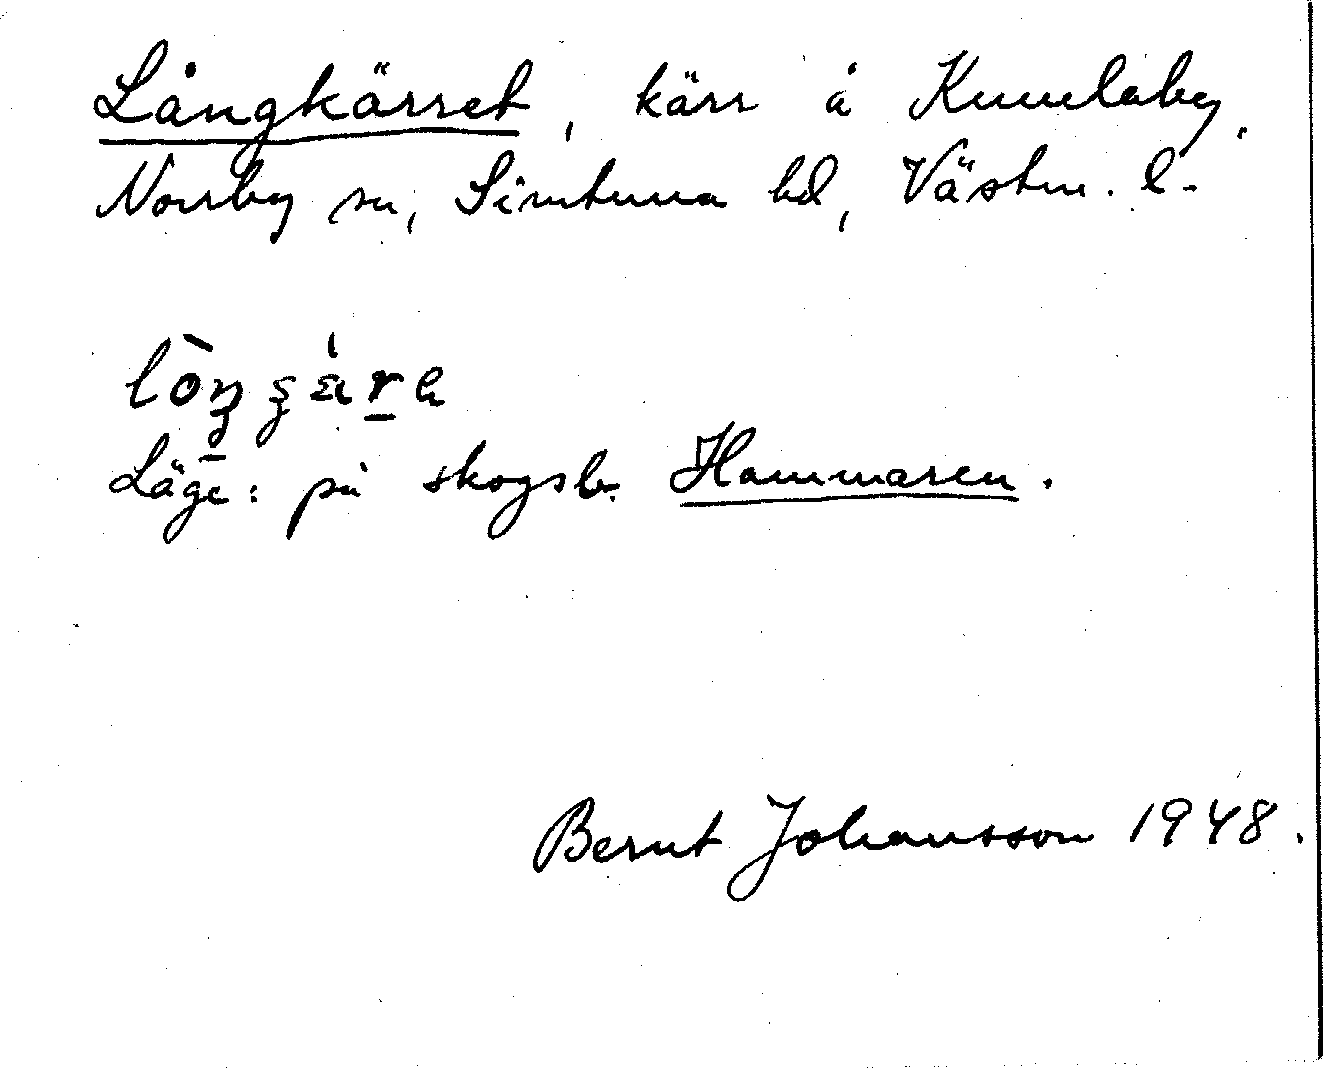 Långkärret, kärr å Kumlaby,
Norrby sn, Simtuna hd, Västm. l.
Läge: på skogsb. Hammaren.
Bernt Johansson 1948.